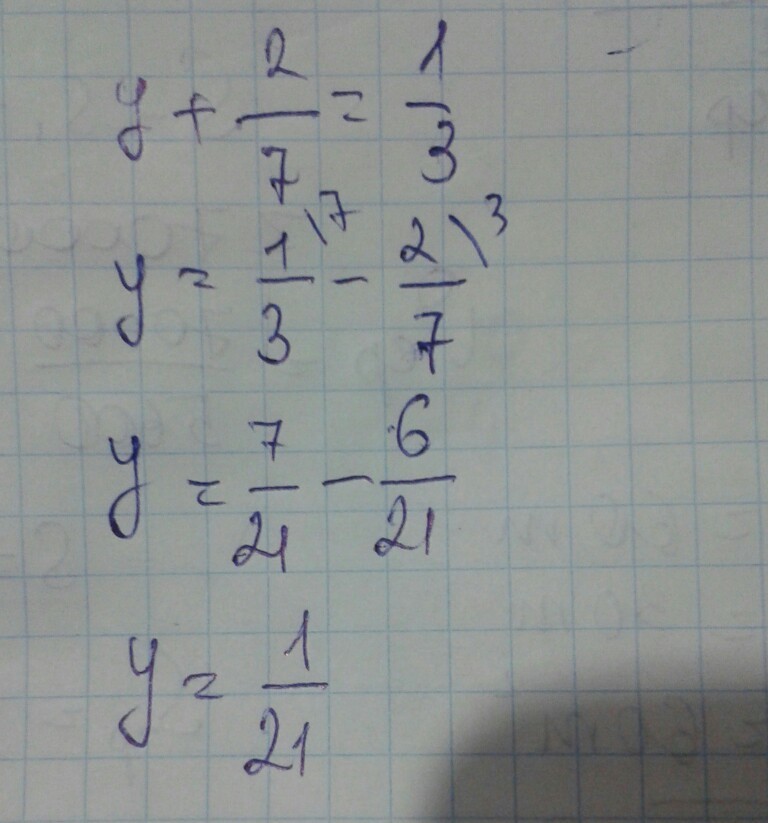 y + 2/7 = 1/3
y = 1\7/3 - 2\3/7
y = 7/21 - 6/21
y = 1/21